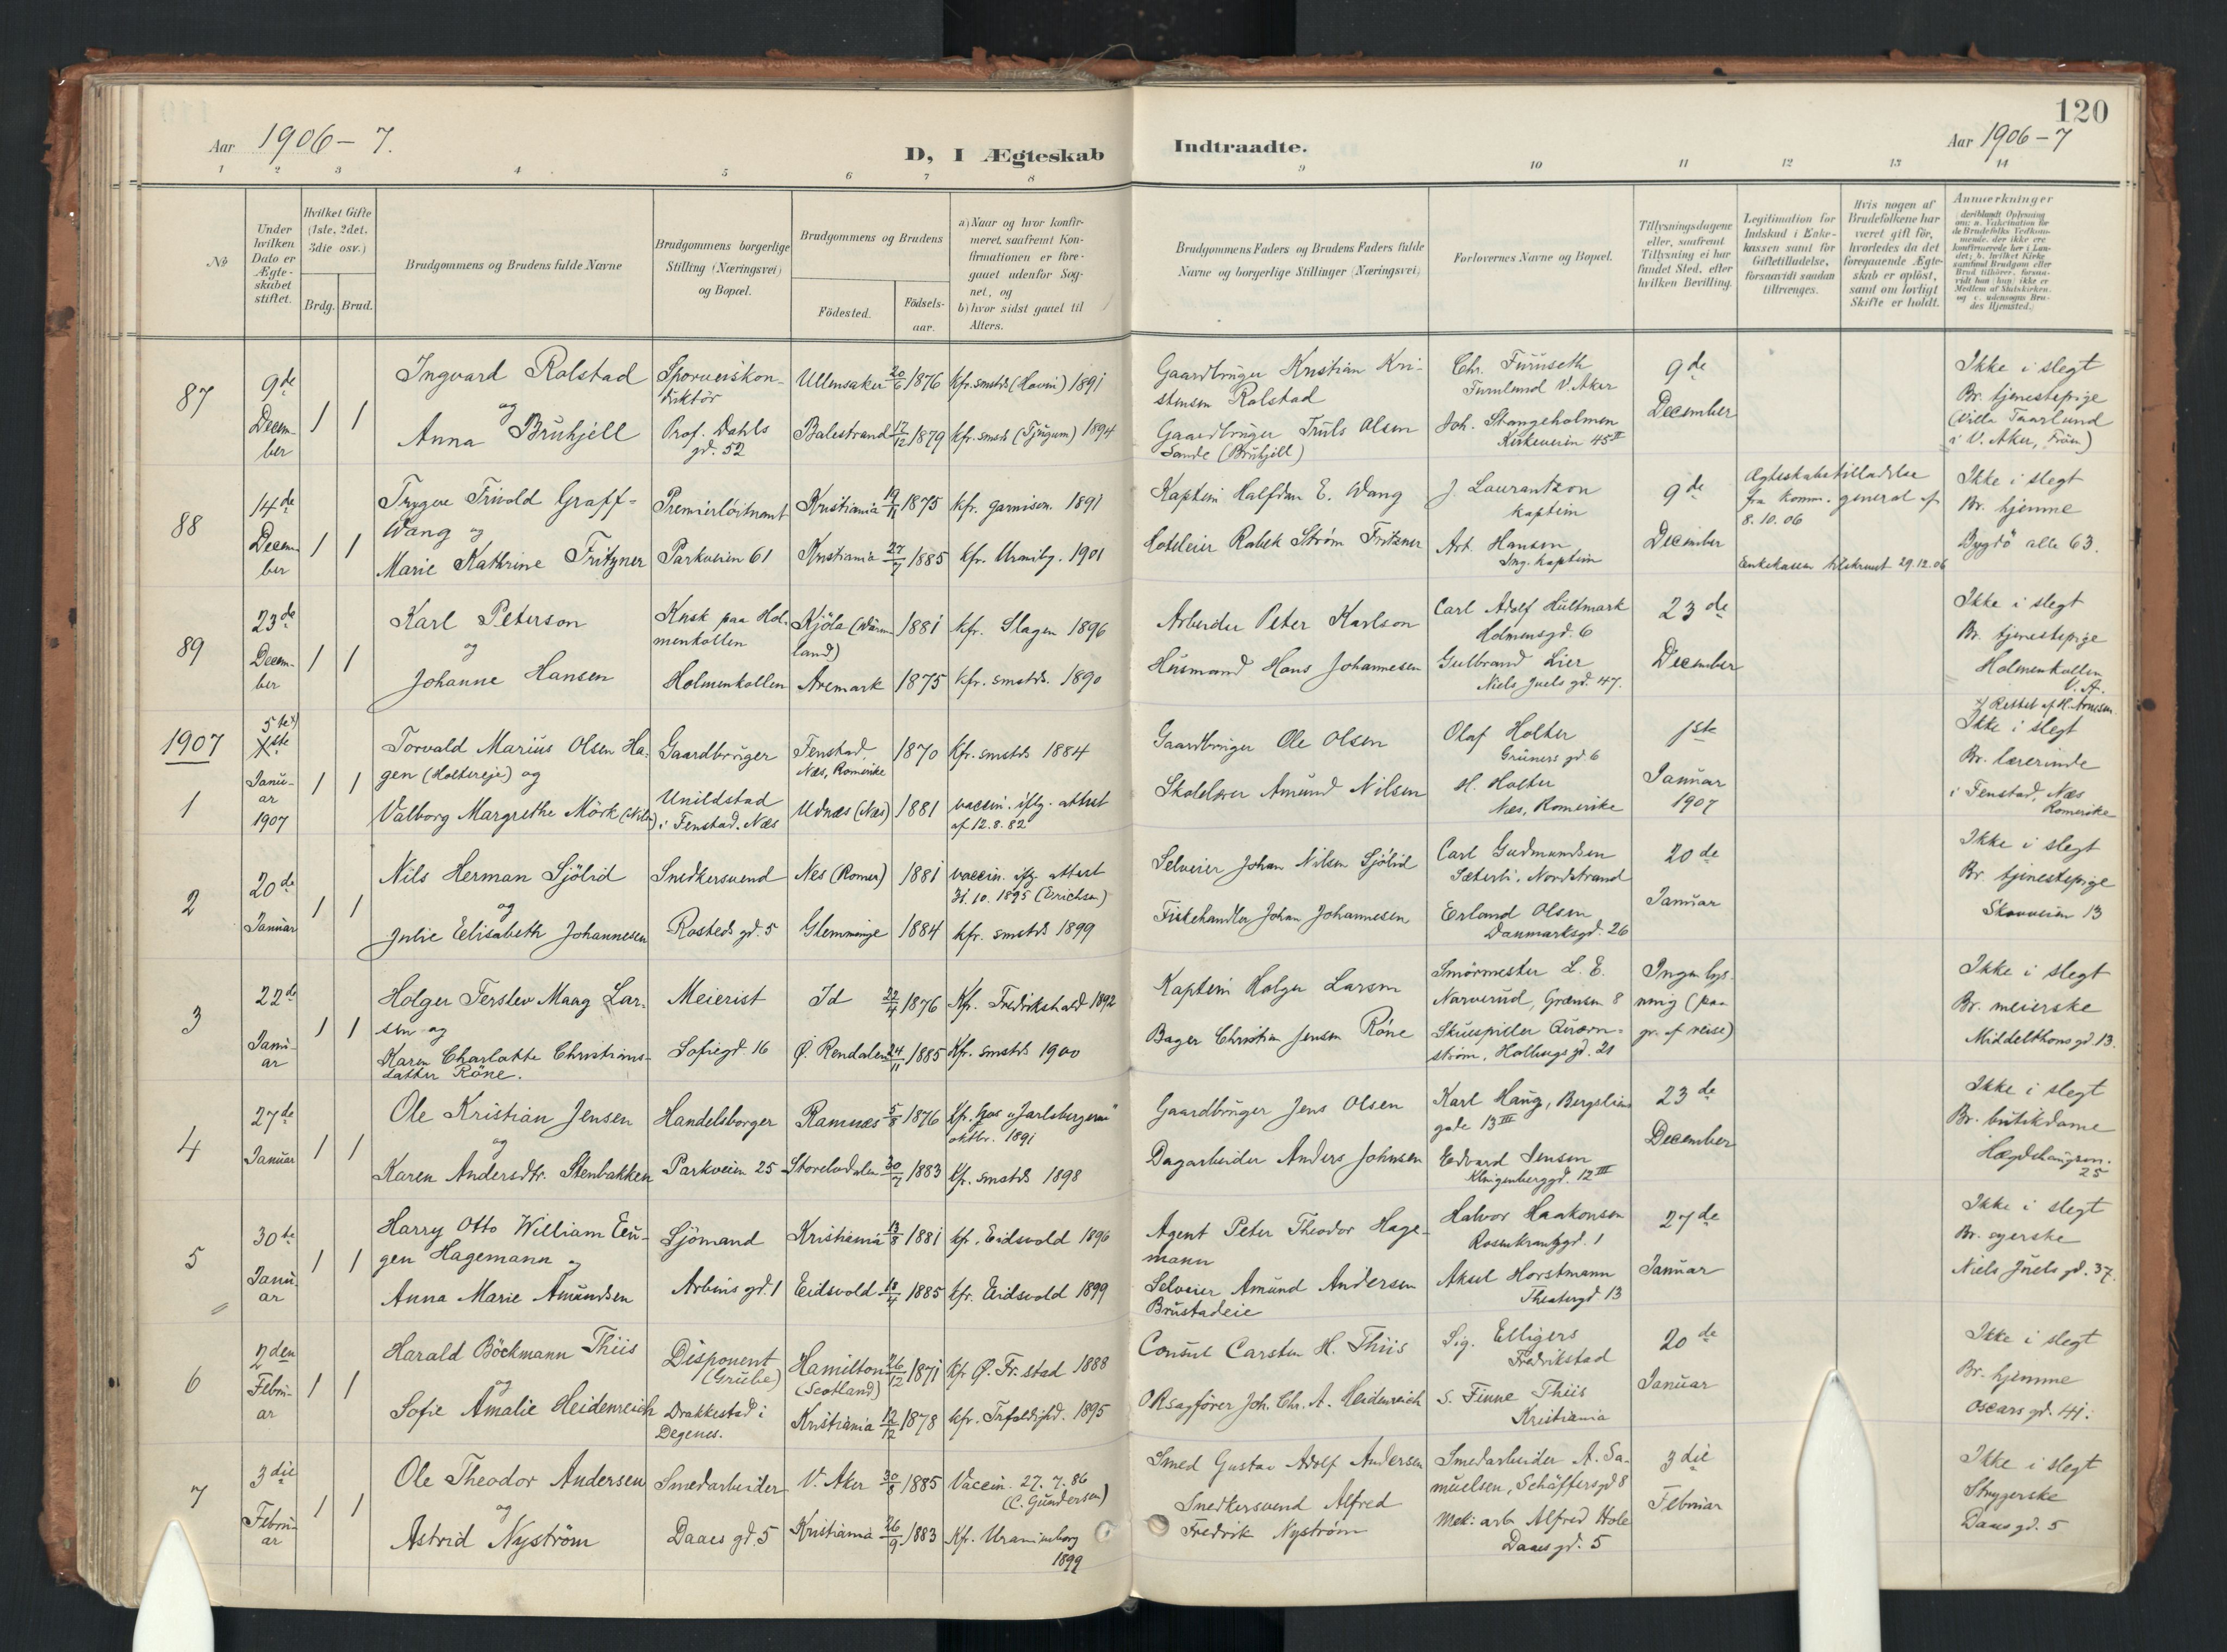 120
Aar 1906 - 7.
D, I Ægteskab
Indtraadte.
Aar 1906 - 7
1 2 3 4 5 6 7 8 9 10 11 12 13 14
No
Under hvilken Dato er Ægteskabet stiftet.
Hvilket Gifte (1ste, 2det, 3die osv.)
Brdg. Brud.
Brudgommens og Brudens fulde Navne
Brudgommens borgerlige Stilling (Næringsvei) og Bopæl.
Brudgommens og Brudens
Fødested.
Fødsels-aar.
a) Naar og hvor konfir-
meret, saafremt Kon-
firmationen er fore-
gaaet udenfor Sog-
net, og
b) hvor sidst gaaet til
Alters.
Brudgommens Faders og Brudens Faders fulde
Navne og borgerlige Stillinger (Næringsvei)
Forlovernes Navne og Bopæl.
Tillysningsdagene
eller, saafremt
Tillysning ei har
fundet Sted, efter
hvilken Bevilling.
Legitimation for
Indskud i Enke-
kassen samt for
Giftetilladelse,
forsaavidt saadan
tiltrænges.
Hvis nogen af
Brudefolkene har
været gift før,
hvorledes da det
foregaaende Ægte-
skab er opløst,
samt om lovligt
Skifte er holdt.
Anmærkninger
87
9de
Decem-
ber
1 1
Ingvard Rolstad
og
Anna Brûhjell
Sporveiskon-
duktör
Prof. Dahls
gd. 52
Ullensaker 20/6 1876 kfr. smsts (Hovin) 1891
Balestrand 17/12 1879 kfr. smsts (Tjugum) 1894
Gaardbruger Kristian Kri-
stensen Rolstad
Gaardbruger Truls Olsen
Sande (Bruhjell)
Chr. Furuseth
Furulund V. Aker
Joh. Stangeholmen
Kirkeveien 45 II
9de
December
Ikke i slegt
Br. tjenestepige
(Villa Taarlund
i V. Aker, Frøen)
88
14de
Decem-
ber
1 1
Trygve Trivold Graff-
Wang og
Marie Kathrine Fritzner
Premierløitnant
Parkveien 61
Kristiania 19/11 1875 kfr. garnison. 1891
Kristiania 27/7 1885 kfr. Uranibg. 1901
Kaptein Halfdan E. Wang
Hoteleier Robek Strøm Fritzner
J. Laurantzon
kaptein
Art. Hansen
Ing. kaptein
9de
December
Ægteskabstilladelse
fra komm. general af
8.10.06
Enkekassen tilskrevet 29.12.06
Ikke i slegt
Br. hjemme
Bygdö alle 63.
89
23de
Decem-
ber
1 1
Karl Peterson
og
Johanne Hansen
Kusk paa Hol-
menkollen
Holmenkollen
Kjöla (Wärm-
land) 1881 kfr. Slagen 1896
Aremark 1875 kfr. smsts. 1890
Arbeider Peter Karlson
Husmand Hans Johannesen
Carl Adolf Hultmark
Holmensgd. 6
Gulbrand Lier
Niels Juels gd. 47.
23de
December
Ikke i slegt
Br. tjenestepige
Holmenkollen
V. A.
x) Rettet af H. Arnesen
1907
1
5te x)
Januar
1907
1 1
Torvald Marius Olsen Ha-
gen (Holtereje) og
Valborg Margrethe Mörk (Nils)
Gaardbruger
Unildstad
i Fenstad, Næs
Fenstad,
Næs, Romerike 1870 kfr. smsts 1884
Udnæs (Næs) 1881 vaccin. iflg. attest
af 12.8.82
Gaardbruger Ole Olsen
Skolelærer Amund Nilsen
Olaf Holter
Gruners gd. 6
H. Holter
Næs, Romerike
1ste
Januar
1907
Ikke i slegt
Br. lærerinde
i Fenstad, Næs
Romerike
2
20de
Januar
1 1
Nils Herman Sjölid
og
Julie Elisabeth Johannesen
Snedkersvend
Rosteds gd. 5
Nes (Romer) 1881 vaccin. iflg. attest
31.10.1895 (Erichsen)
Glemminge 1884 kfr. smsts 1899
Selveier Johan Nilsen Sjölid
Fiskehandler Johan Johannesen
Carl Gudmundsen
Sæterli, Nordstrand
Erland Olsen
Danmarksgd. 26
20de
Januar
Ikke i slegt
Br. tjenestepige
Skovveien 13
3
22de
Janu-
ar
1 1
Holger Terslev Maag Lar-
sen og
Karen Charlotte Christians-
datter Röne.
Meierist
Sofiegd. 16
Id 22/4 1876 Kfr. Fredrikshald 1892
Ø. Rendalen 24/11 1885 Kfr. smsts 1900
Kaptein Holger Larsen
Bager Christian Jensen Röne
Smörmester L. E.
Narverud, Grænsen 8
Skuespiller Quarn-
ström, Holbergs gd. 21
Ingen lys-
ning (paa
gr. af reise)
Ikke i slegt
Br. meierske
Middelthons gd. 13.
4
27de
Januar
1 1
Ole Kristian Jensen
og
Karen Andersdtr. Stenbakken
Handelsborger
Parkveien 25
Ramnæs 5/8 1876 kfr. hos "Jarlsbergerne"
oktbr. 1891
Storelvdalen 30/7 1883 kfr. smsts 1898
Gaardbruger Jens Olsen
Dagarbeider Anders Johnsen
Karl Haug, Bergsliens
gade 13 III
Edvard Jensen
Klingenberggd. 12 III
23de
December
Ikke i slegt
Br. butikdame
Hægdehaugsvn.
25
5
30te
Janu-
ar
1 1
Harry Otto William Eu-
gen Hagemann og
Anna Marie Amundsen
Sjömand
Arbins gd. 1
Kristiania 13/8 1881 kfr. Eidsvold 1896
Eidsvold 18/4 1885 kfr. Eidsvold 1899
Agent Peter Theodor Hage-
mann
Selveier Amund Andersen
Brustadeie
Halvor Haakonsen
Rosenkrantzgd. 1
Aksel Horstmann
Theatergd 13
27de
Januar
Ikke i slegt
Br. syerske
Niels Juels gd. 37.
6
2den
Febru-
ar
1 1
Harald Böckmann Thiis
og
Sofie Amalie Heidenreich
Disponent
(Grube)
Drakkestad i
Degenes.
Hamilton
(Scotland) 26/12 1871 kfr. Ø. Fr. stad 1888
Kristiania 12/12 1878 kfr. Trefoldighd. 1895
Consul Carsten H. Thiis
ORsagfører Joh. Chr. A. Heidenreich
Sig. Elligers
Fredrikstad
S. Finne Thiis
Kristiania
20de
Januar
Ikke i slegt
Br. hjemme
Oscars gd. 41.
7
3die
Febru-
ar
1 1
Ole Theodor Andersen
og
Astrid Nyström
Smedarbeider
Daaes gd. 5
V. Aker 30/8 1885 Vaccin. 27.7.86
(C. Gundersen)
Kristiania 26/9 1883 Kfr. Uranienborg
1899
Smed Gustav Adolf Andersen
Snedkersvend Alfred
Fredrik Nyström
Smedarbeider A. Sa-
muelsen, Schäffersgd 8
Mek: arb Alfred Hole
Daaes gd. 5
3die
Februar
Ikke i slegt
Strygerske
Daaes gd. 5